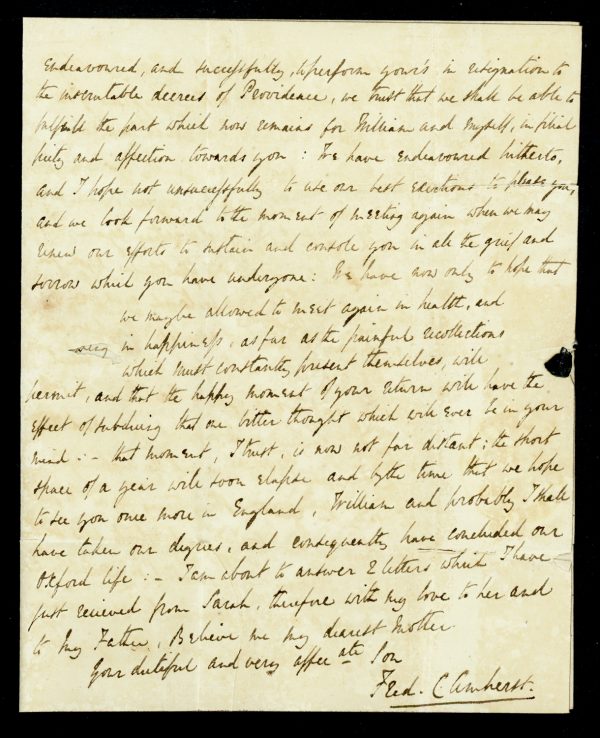 Endeavoured, and successfully, to perform yours in resignation to
the inscrutable decrees of Providence, we trust that we shall be able to
fulfill the part which now remains for William and myself, in filial
piety and affection towards you : We have endeavoured hitherto,
and I hope not unsuccessfully to use our best exertions to please you,
and we look forward to the moment of meeting again when we may
renew our efforts to sustain and console you in all the grief and
sorrow which you have undergone : We have now only to hope that
we may be allowed to meet again in health, and
in happiness, as far as the painful recollections
which must constantly present themselves, will
permit, and that the happy moment of your return will have the
effect of subduing that one bitter thought which will ever be in your
mind : - that moment, I trust, is now not far distant ; the short
space of a year will soon elapse and by the time that we hope
to see you once more in England, William and probably I shall
have taken our degrees, and consequently have concluded our
Oxford life : - I am about to answer 2 letters which I have
just recieved from Sarah, therefore with my love to her and
to my Father, Believe me my dearest Mother
Your dutiful and very affecate Son
Fred. C Amherst.